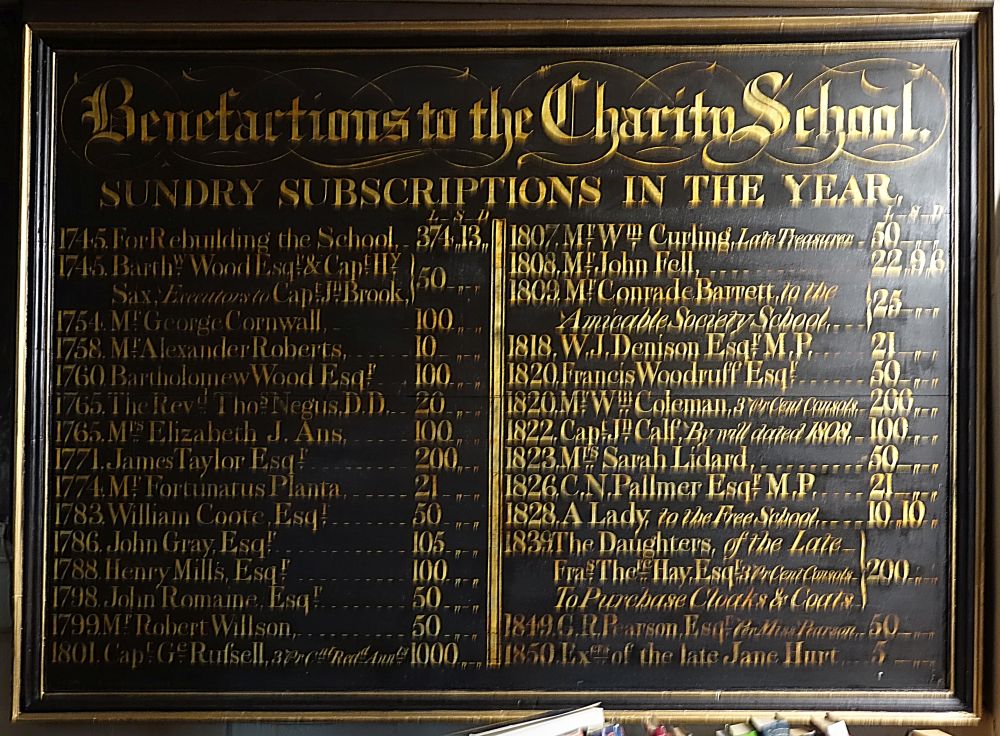 Benefactions to the Charity School,
SUNDRY SUBSCRIPTIONS IN THE YEAR,
L - S - D
1745. For Rebuilding the School, - 374,, 13,,
1745. Barthw Wood Esqr. & Capt. Hy
Sax, Executors to Capt. Jn. Brook, } 50 -,,-,,
1754. Mr. George Cornwall, 100 -,,-,,
1758. Mr. Alexander Roberts, 10 -,,-,,
1760. Bartholomew Wood Esqr. 100 -,,-,,
1765. The Revd. Thos. Negus, D.D. 20 -,,-,,
1765. Mrs. Elizabeth J. Ans, 100 -,,-,,
1771. James Taylor Esqr. 200 -,,-,,
1774. Mr. Fortunatus Planta 21 -,,-,,
1783. William Coote, Esqr. 50 -,,-,,
1786. John Gray, Esqr. 105 -,,-,,
1788. Henry Mills, Esqr. 100 -,,-,,
1798. John Romaine, Esqr. 50 -,,-,,
1799. Mr. Robert Willson, 50 -,,-,,
1801. Capt. Ge. Ruſsell, 3 Pr Ct Redd. Annts 1000 -,,-,,
L - S - D
1807. Mr. Wm. Curling, Late Treasurer 50 -,,-,,
1808. Mr. John Fell, 22,, 9,, 6
1809. Mr. Conrade Barrett, to the
Amicable Society School, } 25 -,,-,,
1818. W. J. Denison Esqr. M.P. 21 -,,-,,
1820. Francis Woodruff Esqr. 50 -,,-,,
1820. Mr. Wm. Coleman, 3 Pr Cent Consols 200 -,,-,,
1822. Capt. Jn. Calf, By will dated 1808, 100 -,,-,,
1823. Mrs. Sarah Lidard, 50 -,,-,,
1826. C. N. Pallmer Esqr. M.P. 21 -,,-,,
1828. A Lady, to the Free School, 10,, 10,,
1839. The Daughters, of the Late
Fras. There. Hay, Esqr. 3 Pr Cent Consols
To Purchase Cloaks & Coats } 200 -,,-,,
1849. G. R. Pearson, Esqr. Per Miss Pearson, 50 -,,-,,
1850. Exers. of the late Jane Hurt 5 -,,-,,